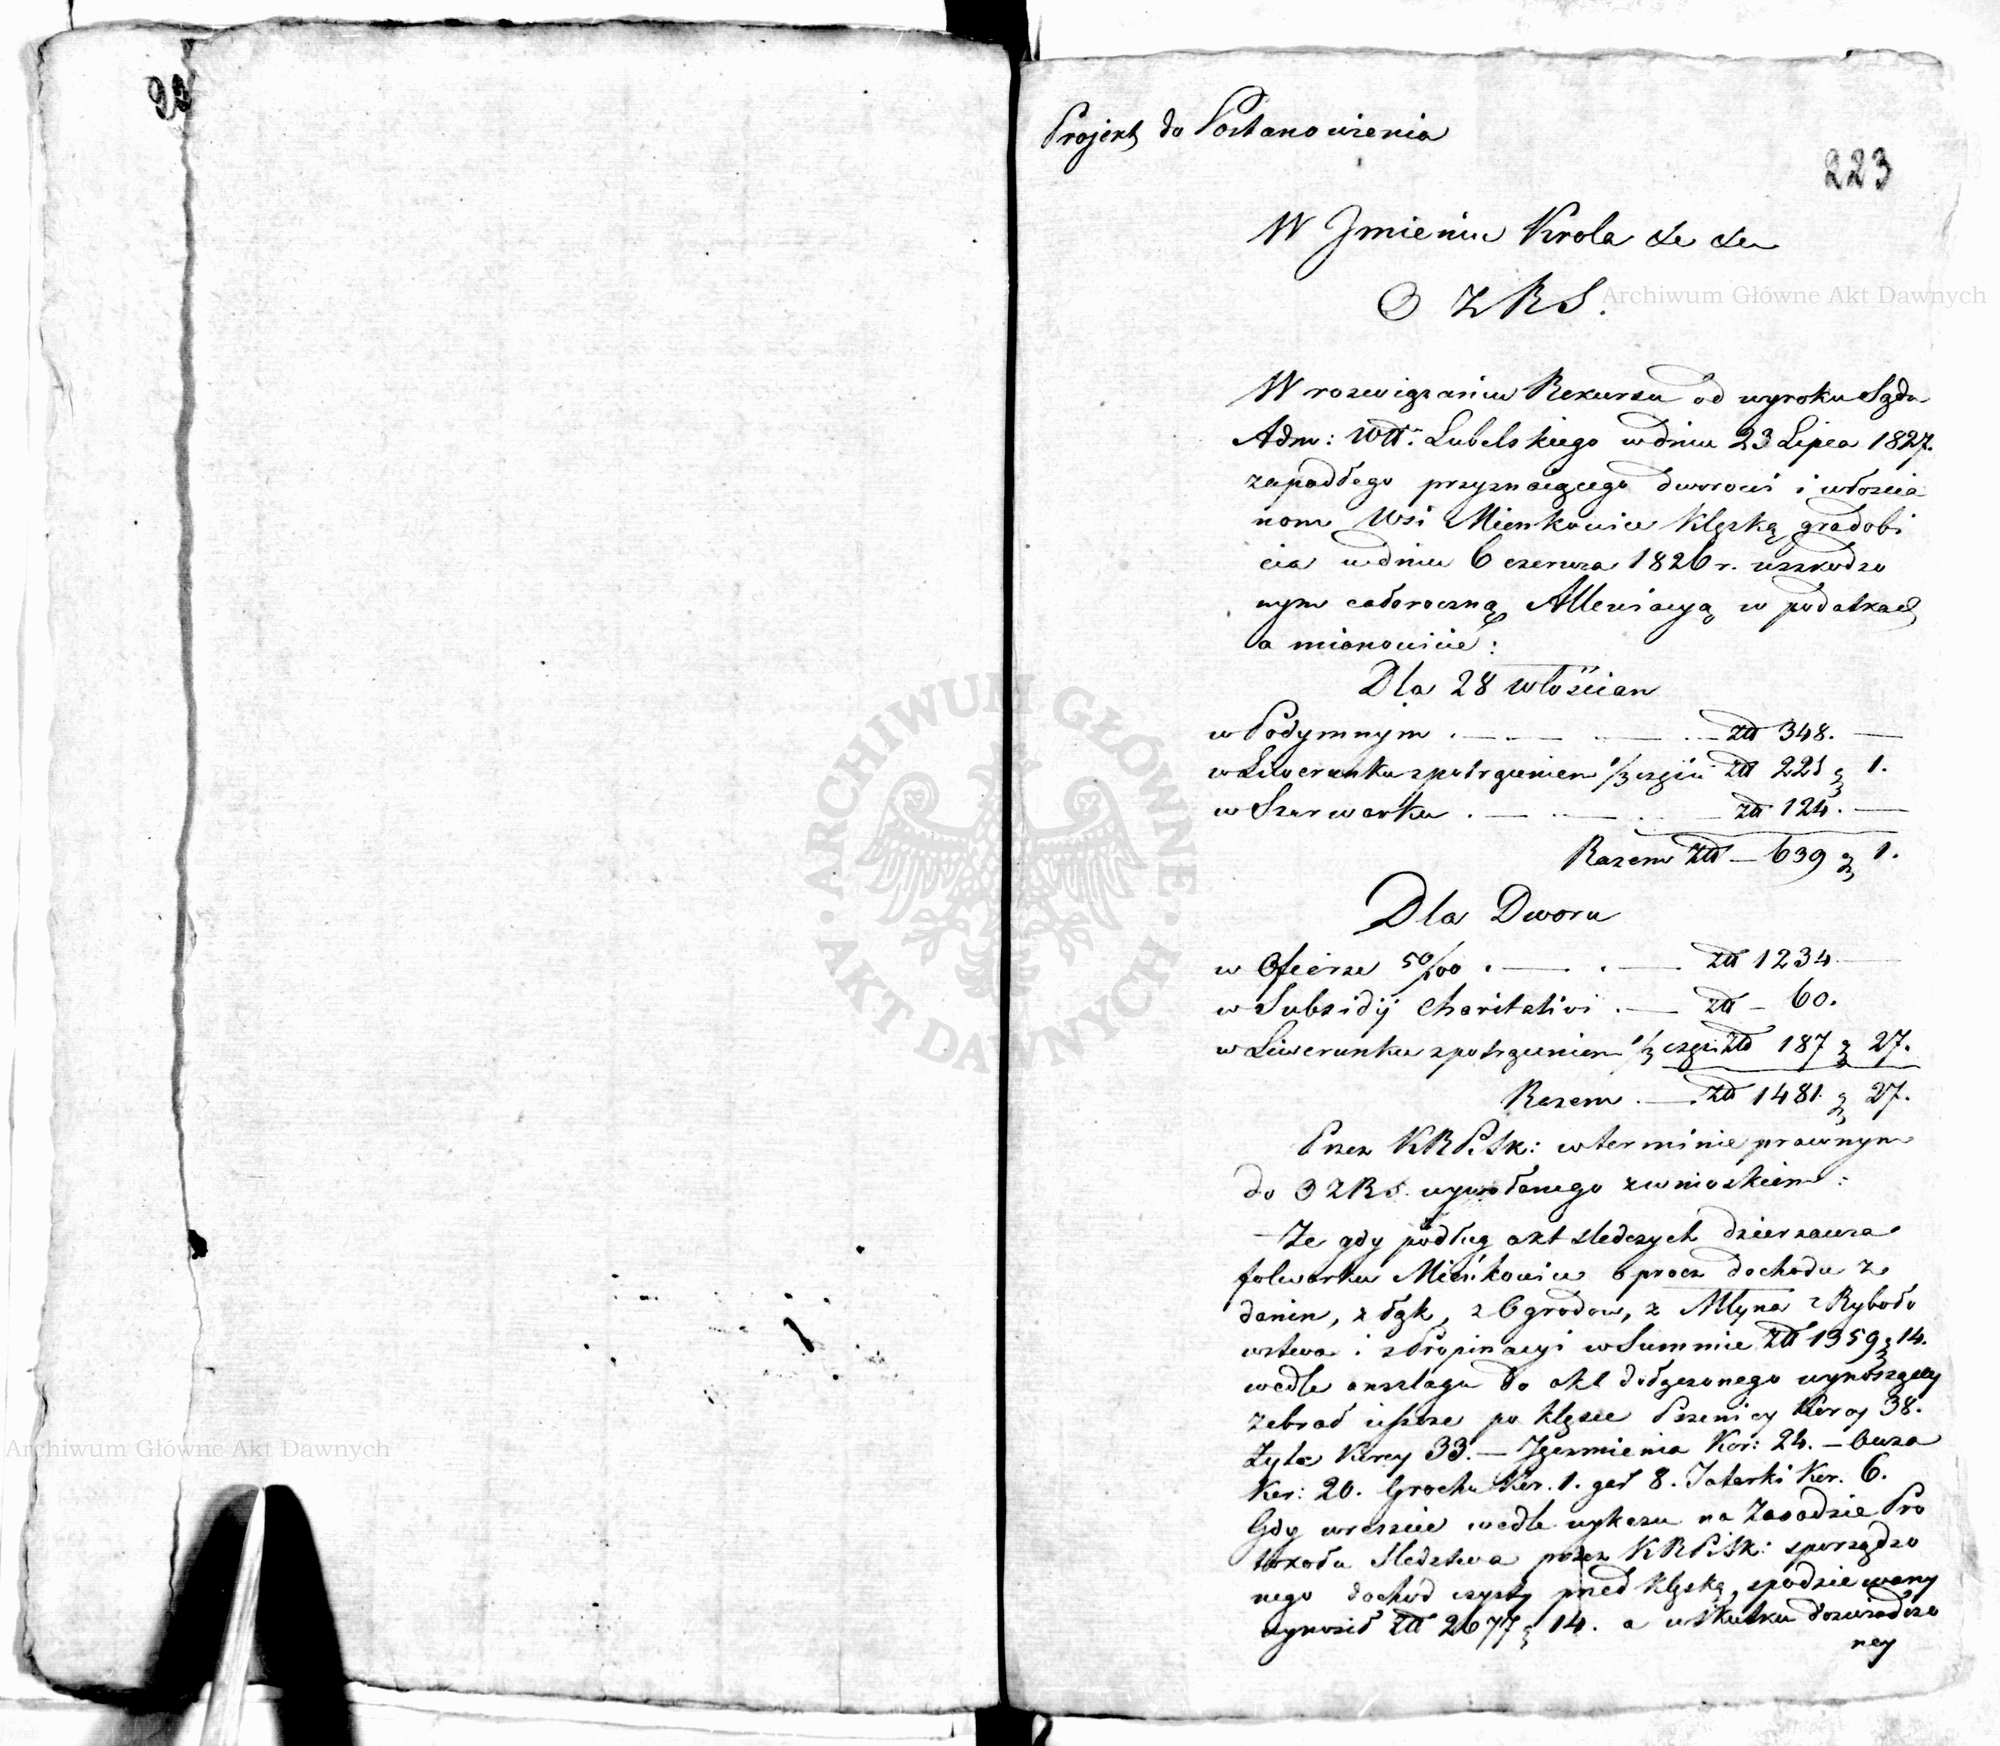 Projekt do Postanowienia
223
W Jmieniu Krola &c &c
O Z R S.
W rozwiązaniu Rekursu od wyroku Sądu
Adm: Wdt. Lubelskiego w dniu 23 Lipca 1827.
zapadłego przyznaiącego dworowi i włoscia
nom Wsi Mienkowice klęską gradobi
cia w dniu 6 czerwca 1826 r. uszkodzo
nym całoroczną Allewiacyą w podatkach
a mianowicie:
Dla 28 włościan
w Podymnym . — — — . — zł 348. —
w Liwerunku z potrąceniem 1/3 części zł 221 g 1.
w Szarwarku . — — . — zł 124. —
Razem zł — 639 g 1.
Dla Dworu
w Ofierze 50/100 . — . — zł 1234 —
w Subsidij Charitativi . — zł — 60.
w Liwerunku z potrąceniem 1/3 części zł 187 g 27.
Razem . — . zł 1481 g 27.
Przez KRPiSk: w terminie prawnym
do OZRS. wywołanego z wnioskiem:
— Ze gdy podług akt sledczych dzierzawca
folwarku Mieńkowice oprocz dochodu z
danin, z łąk, z Ogrodow, z Młyna z Ryboło
wstwa i z Propinacyi w Summie zł 1359 g 14.
wedle anszlagu do akt dołączonego wynoszący
zebrał ieszcze po klęsce Pszenicy Korcy 38.
Żyta Korcy 33. — Jęczmienia Kor: 24. — Owsa
Kor: 20. Grochu Kor. 1. gar 8. Tatarki Kor. 6.
Gdy wreszcie wedle wykazu na Zasadzie Pro
tokołu Sledztwa przez KRPiSk: sporządzo
nego dochod czysty przed klęską spodziewany
wynosił zł 2677 g 14. a w skutku doswiadczo
ney
Archiwum Główne Akt Dawnych
Archiwum Główne Akt Dawnych
ARCHIWUM GŁÓWNE · AKT DAWNYCH ·